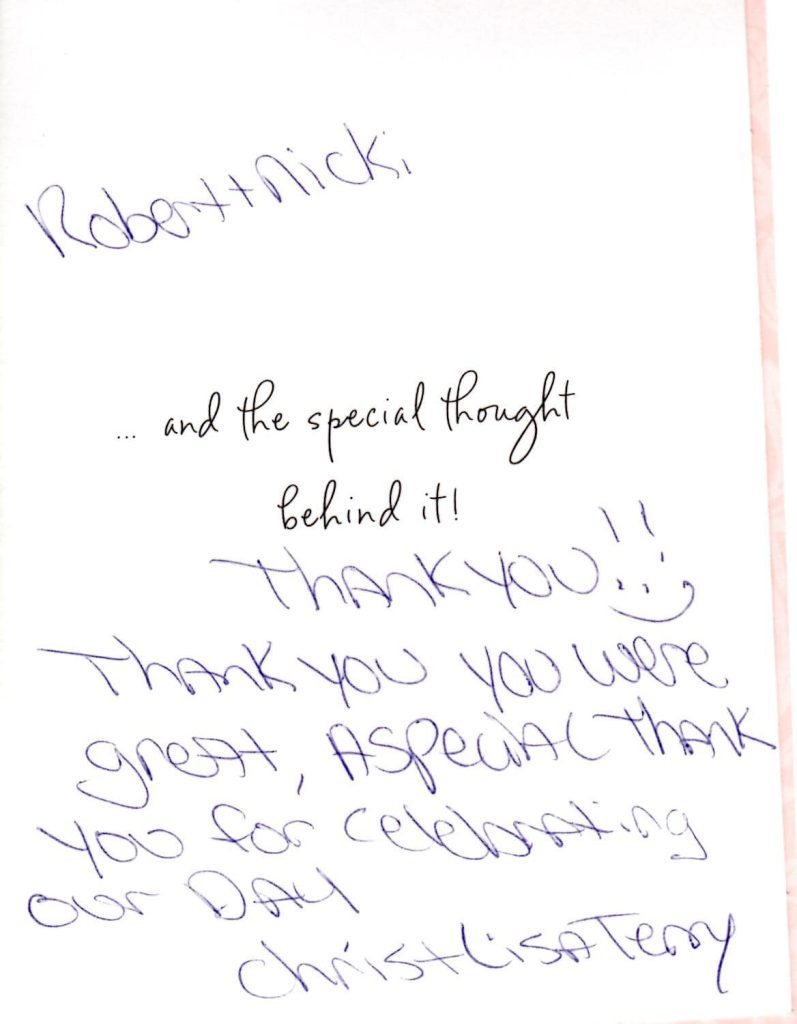 Robert + Nick,
... and the special thought
behind it!
Thank you!! :)
Thank you you were
great, A special thank
you for celebrating
our DAY
Chris + Lisa Terry